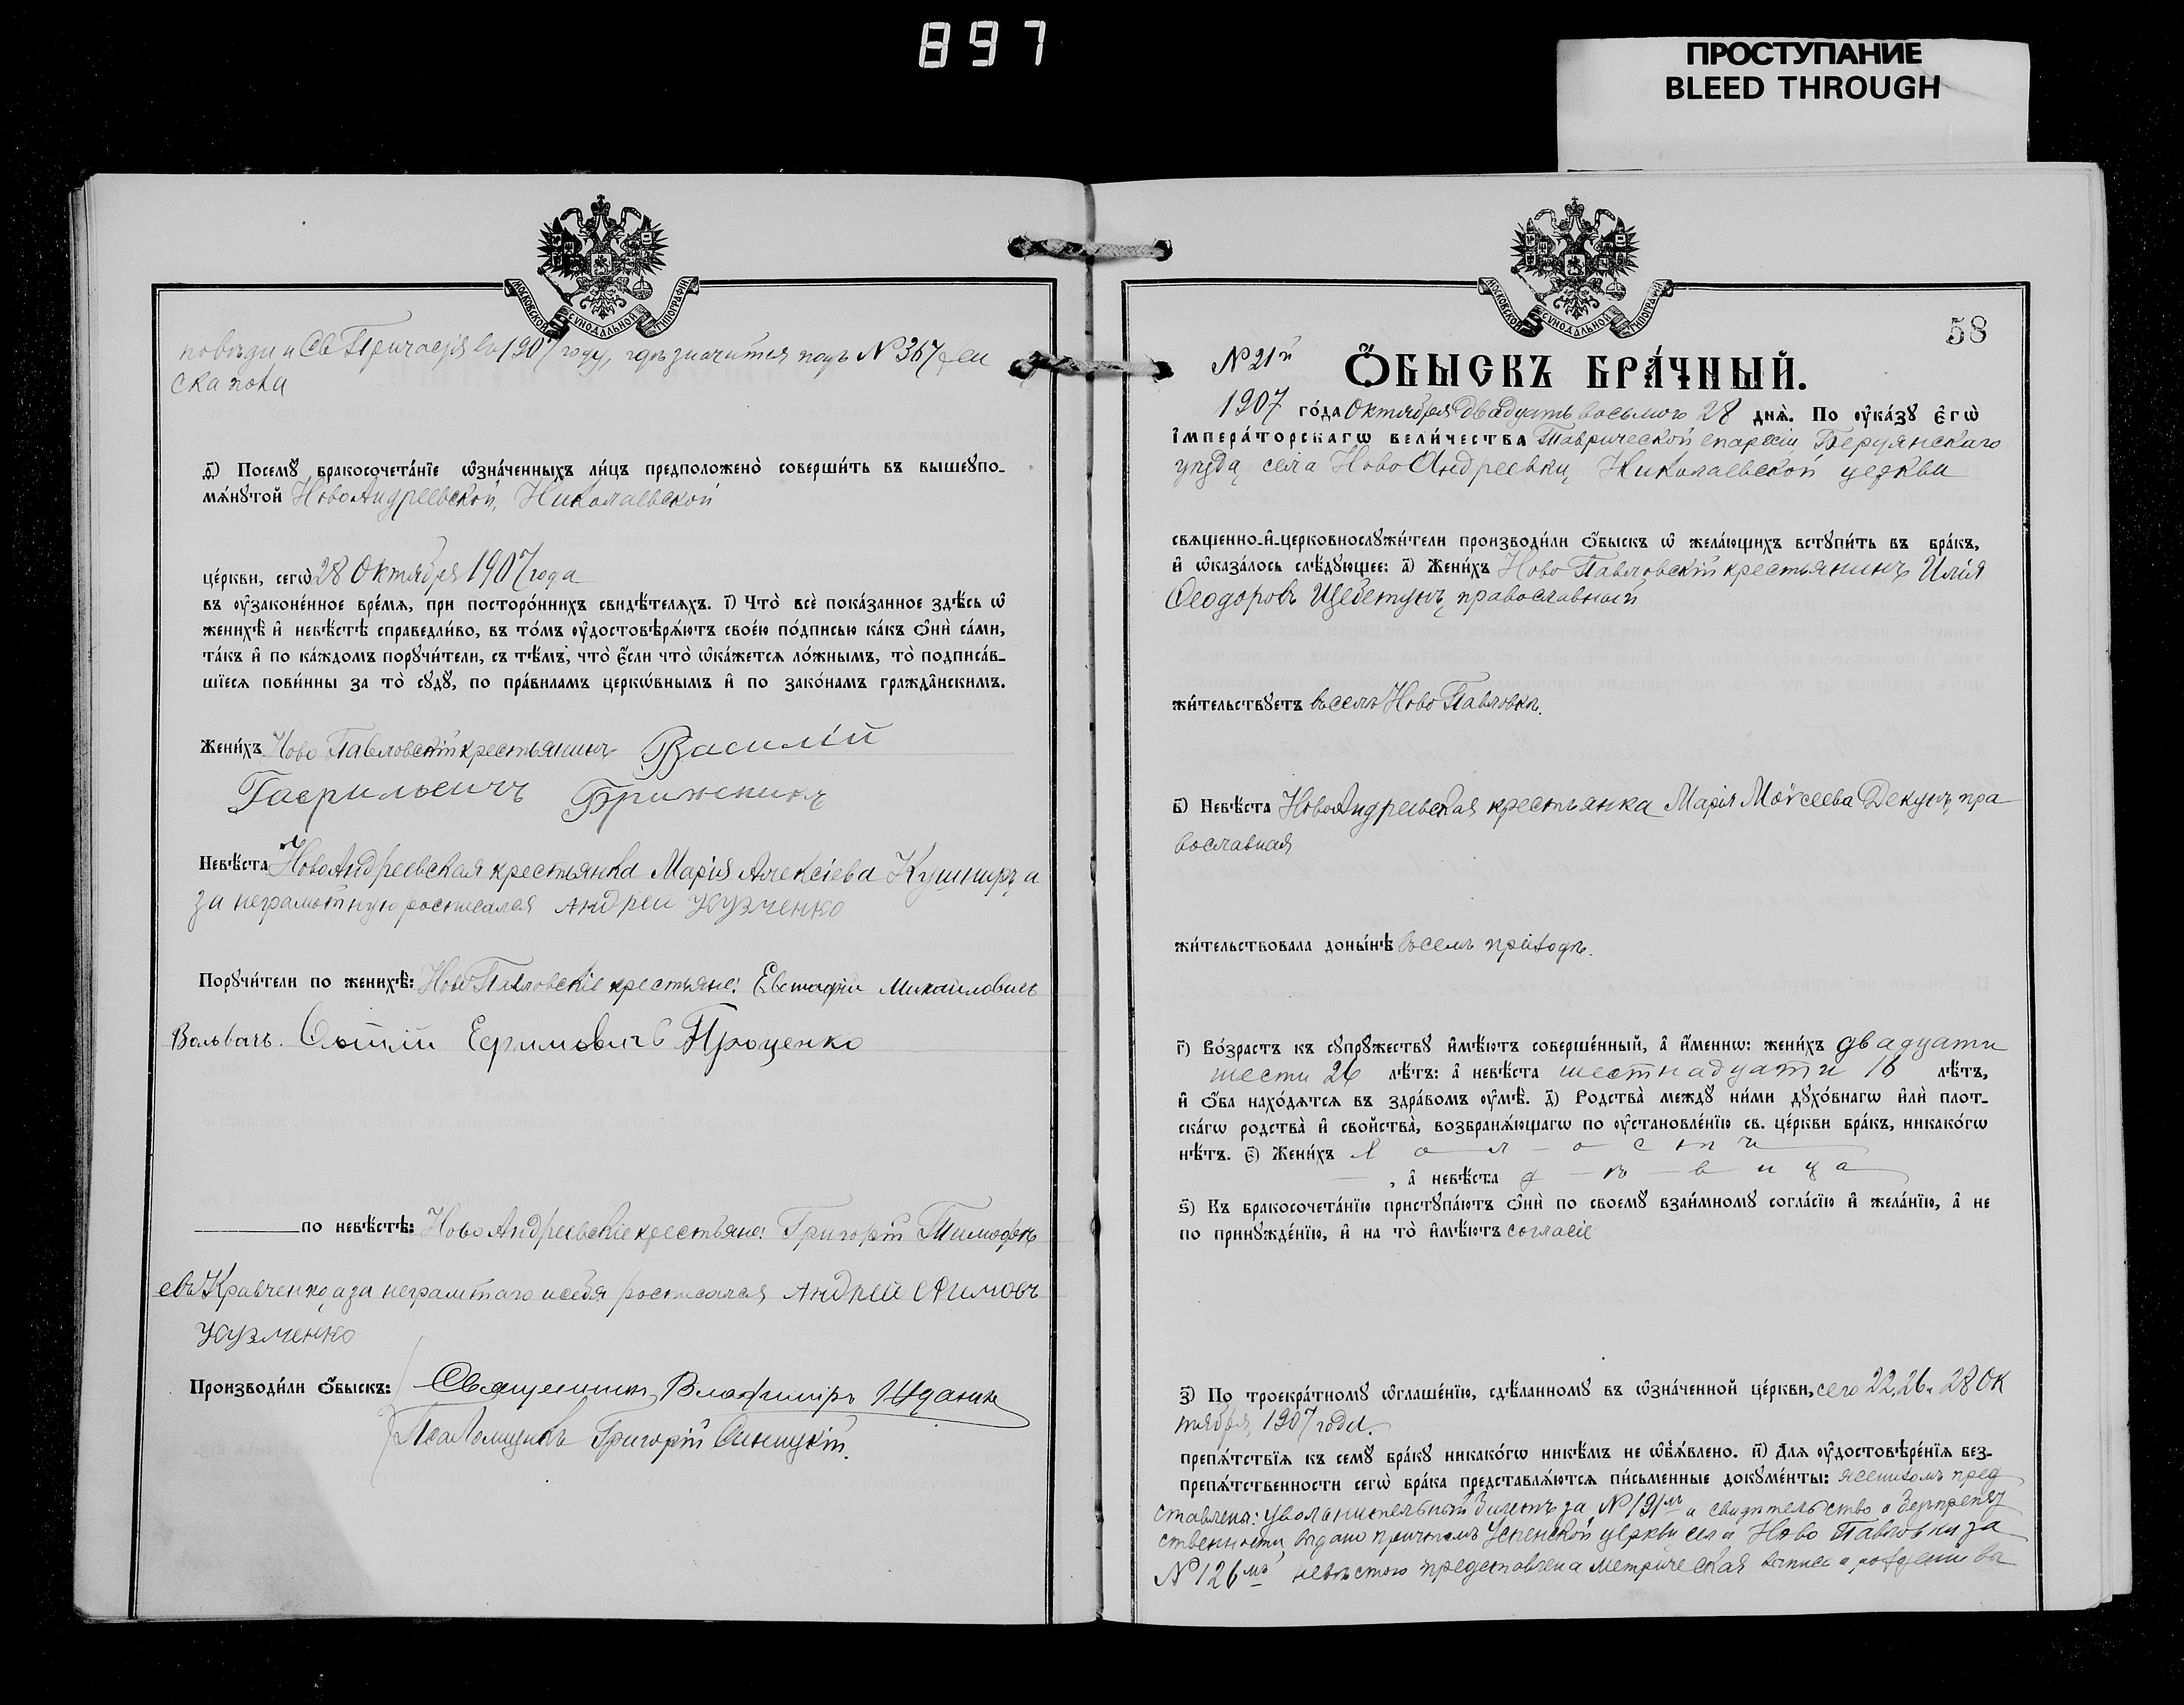 897
ПРОСТУПАНИЕ
BLEED THROUGH
МОСКОВСКОЙ СѴНОДАЛЬНОЙ ТИПОГРАФІИ
и Св Причастія въ 1907 году, гдѣ значится подъ № 367
д҃) Посемꙋ̀ бракосочета́нїе ѡ҆зна́ченныхъ ли́цъ предположено̀ соверши́ть въ вышеꙋпо-
мѧ́нꙋтой Ново Андреевской, Николаевской
це́ркви, сегѡ̀ 28 Октября 1907 года
въ ᲂу҆законе́нное вре́мѧ, при посторо́ннихъ свидѣ́телѧхъ. і҃) Что̀ всѐ пока́занное здѣ́сь ѡ҆
женихѣ̀ и҆ невѣ́стѣ справедли́во, въ то́мъ ᲂу҆достовѣрѧ́ютъ свое́ю по́дписью ка́къ ѻ҆нѝ са́ми,
та́къ и҆ по ка́ждомъ порꙋчи́тели, съ тѣ́мъ, что̀ є҆́сли что̀ ѡ҆ка́жетсѧ ло́жнымъ, то̀ подписа́в-
шїесѧ пови́нны за то̀ сꙋдꙋ̀, по пра́виламъ церкѡ́внымъ и҆ по зако́намъ гражда̂нскимъ.
Жени́хъ Ново Павловскій крестьянинъ Василій
Гаврильевичъ Брижникъ
Невѣ́ста Ново Андреевская крестьянка Марія Алексіева Кушниръ, а
за неграмотную росписался Андрей Кузменко
Порꙋчи́тели по женихѣ̀: Ново Павловскіе крестьяне: Евстафій Михайловичъ
Вольвачъ. Ефимовичъ Проценко
по невѣ́стѣ: Ново Андреевскіе крестьяне: Григорій Тимофѣ
евъ Кравченко, а за неграмтаго и себя росписался Андрей Акимовъ
Кузменко
Производи́ли ѻ҆́быскъ: Священникъ Владимиръ Жданик
Псаломщикъ Григорій Синицкій.
МОСКОВСКОЙ СѴНОДАЛЬНОЙ ТИПОГРАФІИ
58
№ 21й
Ѻ҆́БЫСКЪ БРА́ЧНЫЙ.
1907 го́да Октября двадцать восьмого 28 днѧ̀. По ᲂу҆ка́зꙋ Є҆гѡ̀
І҆мпера́торскагѡ вели́чества Таврической епархіи Бердянскаго
уѣзда, села Ново Андреевки, Николаевской церкви
свѧщенно-и҆-церковнослꙋжи́тели производи́ли ѻ҆́быскъ ѡ҆ жела́ющихъ встꙋпи́ть въ бра́къ,
и҆ ѡ҆каза́лось слѣ́дꙋющее: а҃) Жени́хъ Ново Павловскій крестьянинъ Илія
Ѳеодоровъ Щебетунъ, православный
жи́тельствꙋетъ въ селѣ Ново Павловкѣ.
в҃) Невѣ́ста Ново Андреевская крестьянка Марія Моѵсеева Декунъ, пра
вославная
жи́тельствовала доны́нѣ въ семъ приходѣ.
г҃) Во́зрастъ къ сꙋпрꙋ́жествꙋ и҆мѣ́ютъ соверше́нный, а҆ и҆́меннѡ: жени́хъ двадцати
шести 26 лѣ́тъ: а҆ невѣ́ста шестнадцати 16 лѣ́тъ,
и҆ ѻ҆́ба нахо́дѧтсѧ въ здра́вомъ ᲂу҆мѣ̀. д҃) Родства̀ междꙋ̀ ни́ми дꙋхо́внагѡ и҆лѝ плот-
ска́гѡ родства̀ и҆ сво́йства, возбранѧ́ющагѡ по ᲂу҆становле́нїю св. це́ркви бра́къ, никако́гѡ
нѣ́тъ. є҃) Жени́хъ холостъ
, а҆ невѣ́ста дѣвица
ѕ҃) Къ бракосочета́нїю пристꙋпа́ютъ ѻ҆нѝ по своемꙋ̀ взаи́мномꙋ согла́сїю и҆ жела́нїю, а҆ не
по принꙋжде́нїю, и҆ на то̀ и҆мѣ́ютъ согласіе
з҃) По троекра́тномꙋ ѡ҆глаше́нїю, сдѣ́ланномꙋ въ ѡ҆зна́ченной це́ркви, сего 22, 26 и 28 Ок
тября, 1907 года.
препѧ́тствїѧ къ семꙋ̀ бра́кꙋ никако́гѡ никѣ́мъ не ѡ҆б̾ѧ́влено. и҃) Длѧ ᲂу҆достовѣре́нїѧ без-
препѧ́тственности сегѡ̀ бра́ка представлѧ́ютсѧ пи́сьменные докꙋме́нты: женихомъ пред
ставлены: увольнительный билетъ за № 191мъ и свидѣтельство о безпрепят
ственности, выдано причтомъ Успенской церкви села Ново Павловки за
№ 126мъ невѣстою представлена метрическая выпись о рожденіи вы